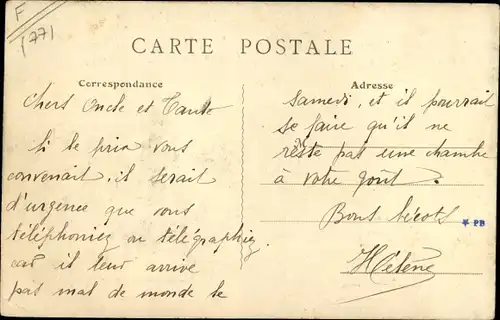 F
1771
CARTE POSTALE
Correspondance
Chers Oncle et Tante
Si le prix vous
convenait, il serait
d'urgence que vous
téléphoniez ou télégraphiez
car il leur arrive
pas mal de monde le
Adresse
samedi, et il pourrait
se faire qu'il ne
reste pas une chambre
à votre goût.
Bons bécots
* PB
Hélène